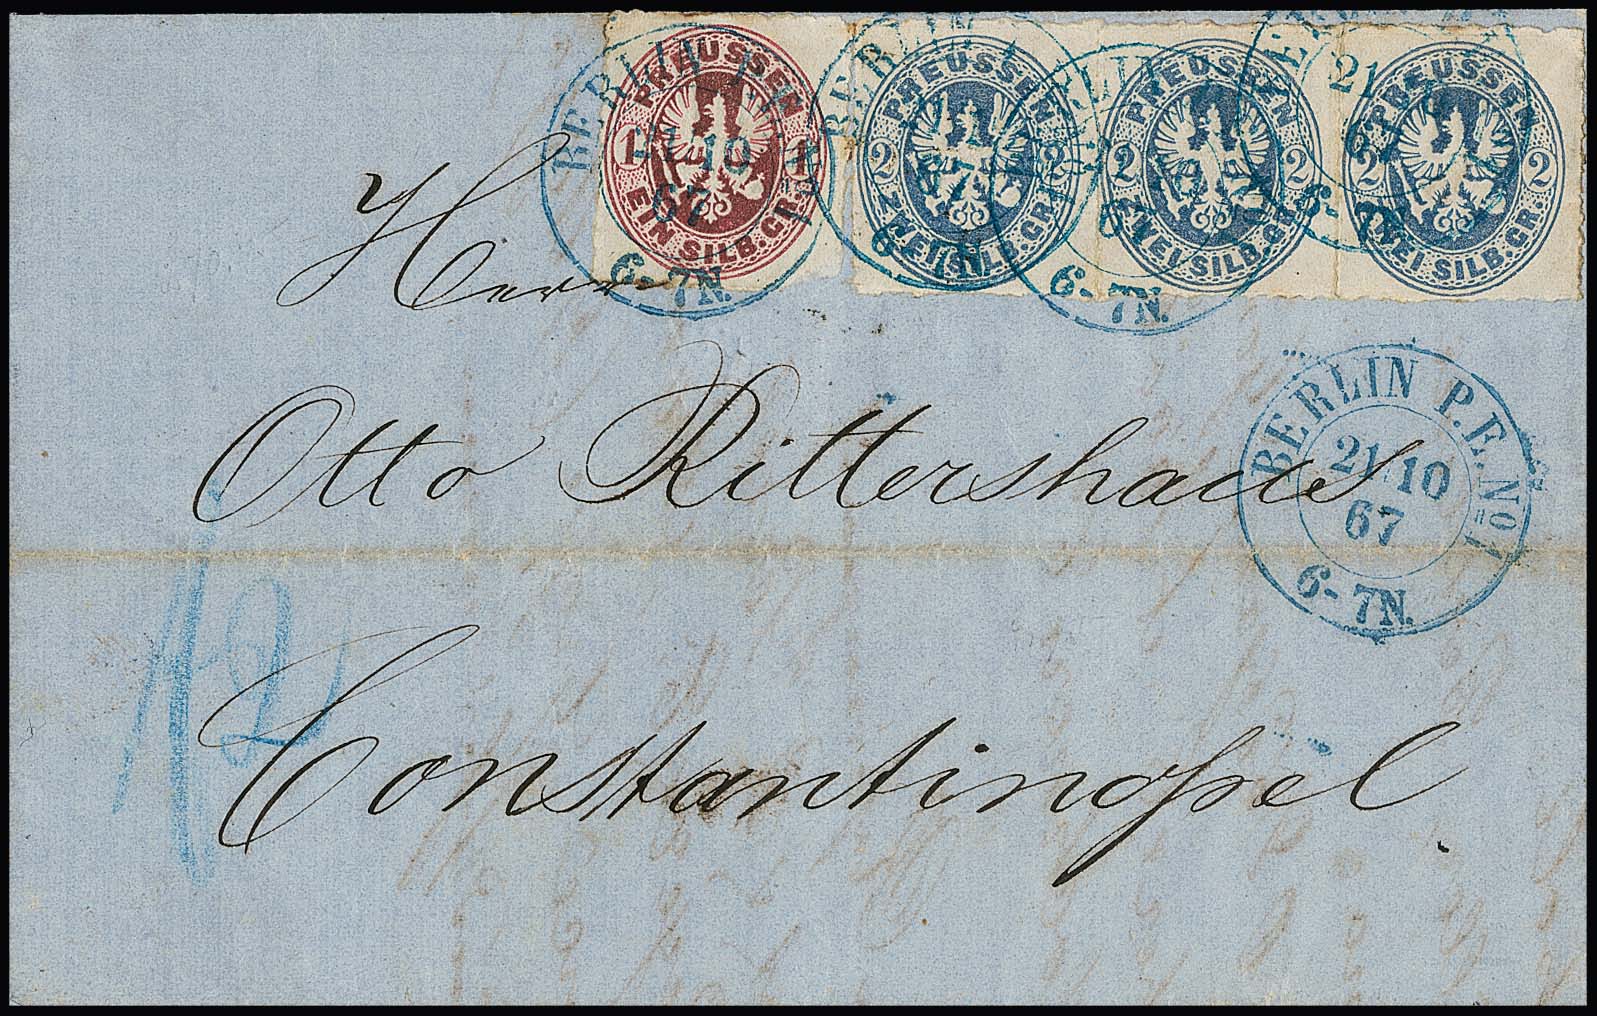 PREUSSEN
1 1
EIN SILB. GR.
PREUSSEN
2 2
ZWEI SILB. GR.
PREUSSEN
2 2
ZWEI SILB. GR.
PREUSSEN
2 2
ZWEI SILB. GR.
BERLIN
10
67
6-7N.
BERLIN
6-7N.
6-7N.
21
Herr
Otto Rittershaus
BERLIN P.E. No 1
21 10
67
6-7N.
Constantinopel.